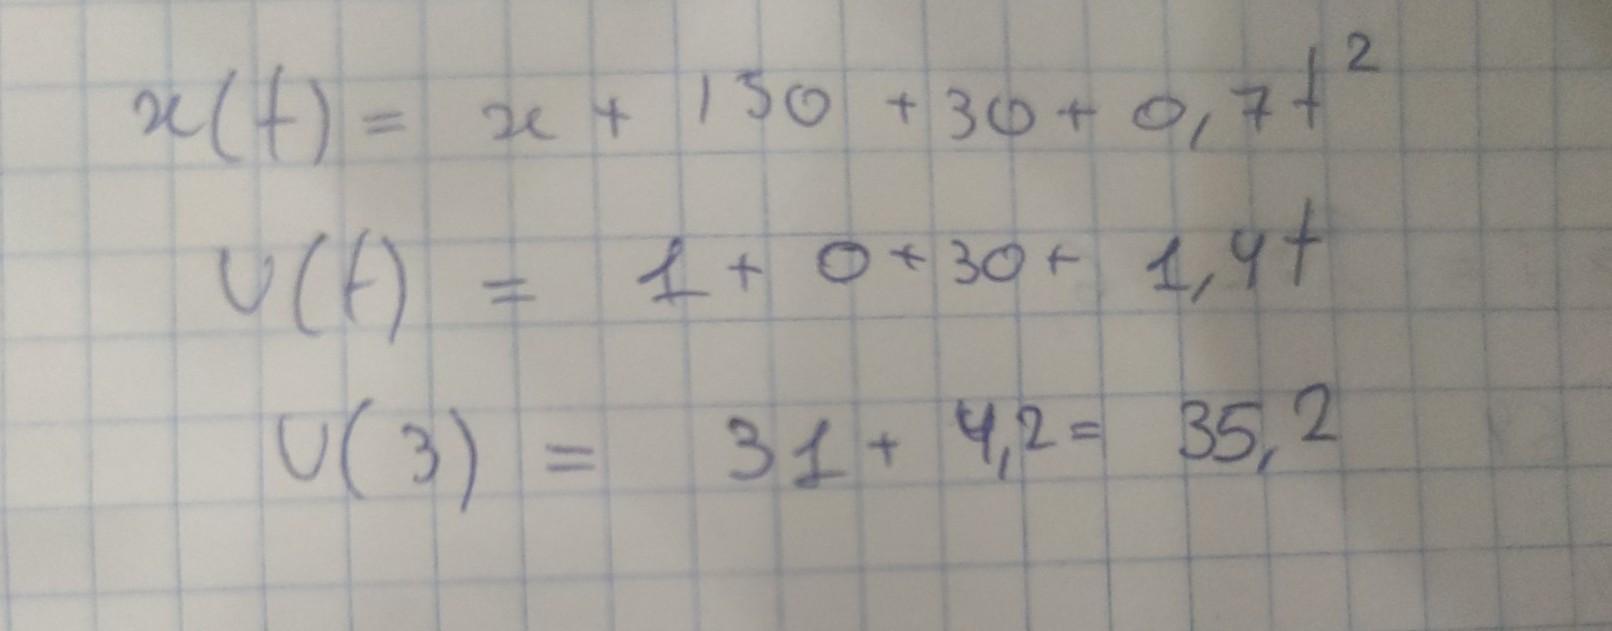 x(t) = x + 150 + 30 + 0,7t²
v(t) = 1 + 0 + 30 + 1,4t
v(3) = 31 + 4,2 = 35,2